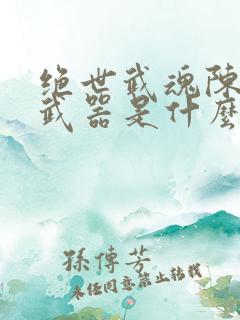 绝世武魂陈
武器是什麽
孫傳芳
未经同意禁止转载